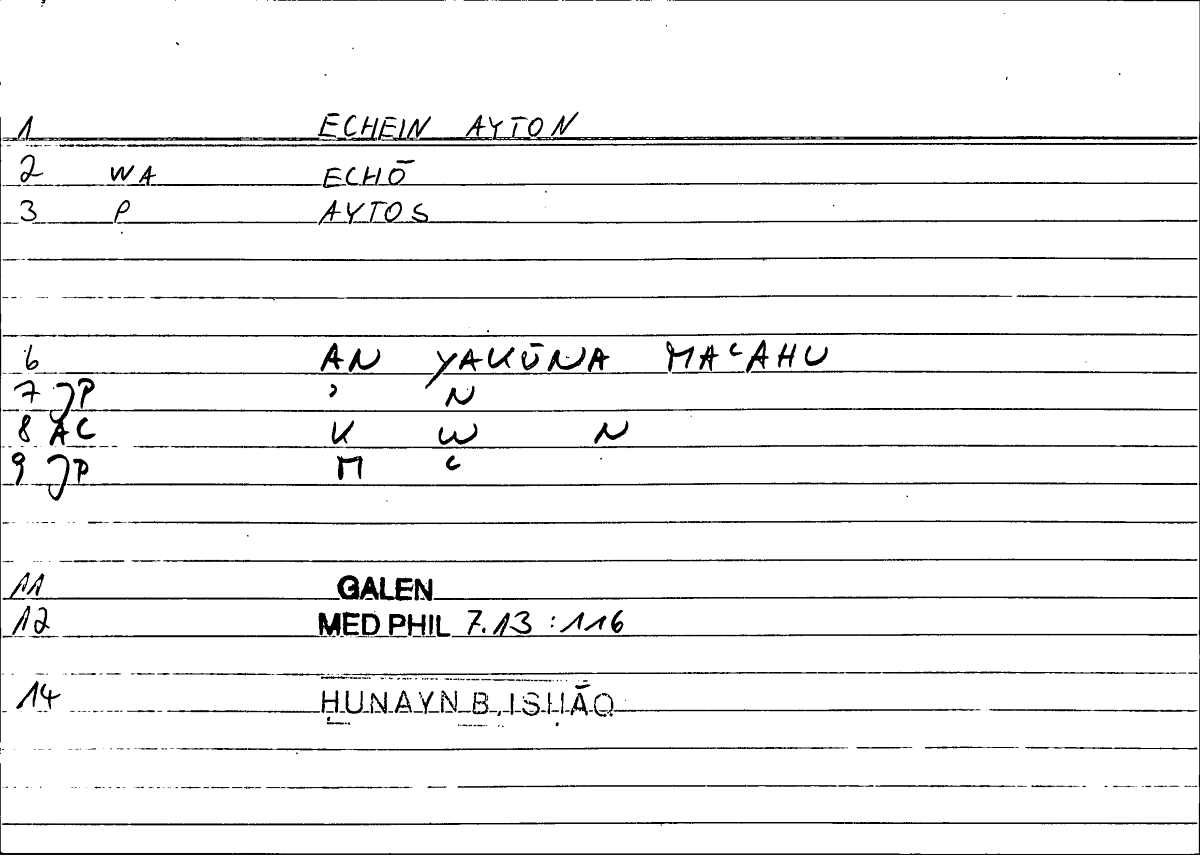 1 ECHEIN AYTON
2 WA ECHŌ
3 P AYTOS
6 AN YAKŪNA MAʿAHU
7 JP ʾ N
8 AC K W N
9 JP M ʿ
11 GALEN
12 MED PHIL 7.13 :116
14 ḤUNAYN B. ISḤĀQ